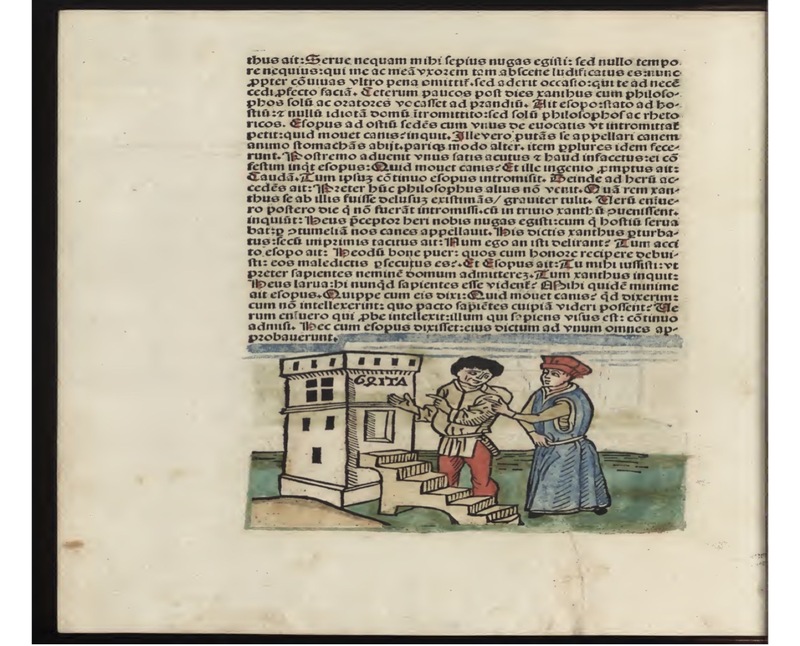 thus ait: Serue nequam mihi sepius nugas egisti: sed nullo tempo
re nequius: qui me ac meā vxorem tam abscene ludificatus es: nunc
ꝓpter cōuiuas vltro pena omittit̄. sed aderit occasio: qui te ad necē
cedi ꝓfecto faciā. Ceterum paucos post dies xanthus cum philoso-
phos solū ac oratores vocasset ad prandiū. Ait esopo: stato ad ho-
stiū: ⁊ nullū idiotā domū ītromittito: sed solū philosophos ac rheto
ricos. Esopus ad ostiū sedēs cum vnus de euocatis vt intromittat̄
petit: quid mouet canis? inquit. Ille vero putās se appellari canem
animo stomachās abijt. pariqꝫ modo alter. item ꝓplures idem fece-
runt. Postremo aduenit vnus satis acutus ⁊ haud infacetus: ei cō
festim inqt̄ esopus: Quid mouet canis? Et ille ingenio ꝓmptus ait:
Caudā. Tum ipsuꝫ cōtinuo esopus intromisit. Deinde ad herū ac-
cedēs ait: Preter hūc philosophus alius nō venit. Quā rem xan-
thus se ab illis fuisse delusuꝫ existimās/ grauiter tulit. Verū eniue-
ro postero die q̄ nō fuerāt intromissi. cū in triuio xanthū ꝯuenissent.
inquiūt: Heus p̄ceptor heri nobis nugas egisti: cum q̄ hostiū serua
bat: ꝑ ꝯtumeliā nos canes appellauit. His dictis xanthus ꝑturba-
tus: secū imprimis tacitus ait: Num ego an isti delirant? Tum acci
to esopo ait: Heodū bone puer: quos cum honore recipere debui-
sti: eos maledictis ꝑsecutus es?. Et Esopus ait: Tu mihi iussisti: vt
preter sapientes neminē domum admitterez. Tum xanthus inquit:
Heus larua: hi nunqd̄ sapientes esse vident̄? Mihi quidē minime
ait esopus. Quippe cum eis dixi: Quid mouet canis? qd̄ dixerim:
cum nō intellexerint: quo pacto sapiētes cuipiā videri possent? Ve
rum enīuero qui ꝓbe intellexit: illum qui sapiens visus est: cōtinuo
admisi. Hec cum esopus dixisset: eius dictum ad vnum omnes ap-
probauerunt.